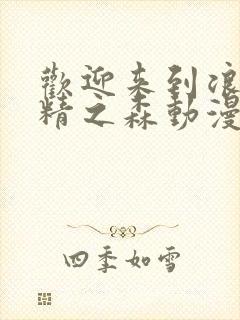 歡迎來到浪
精之森動漫
四季如雪